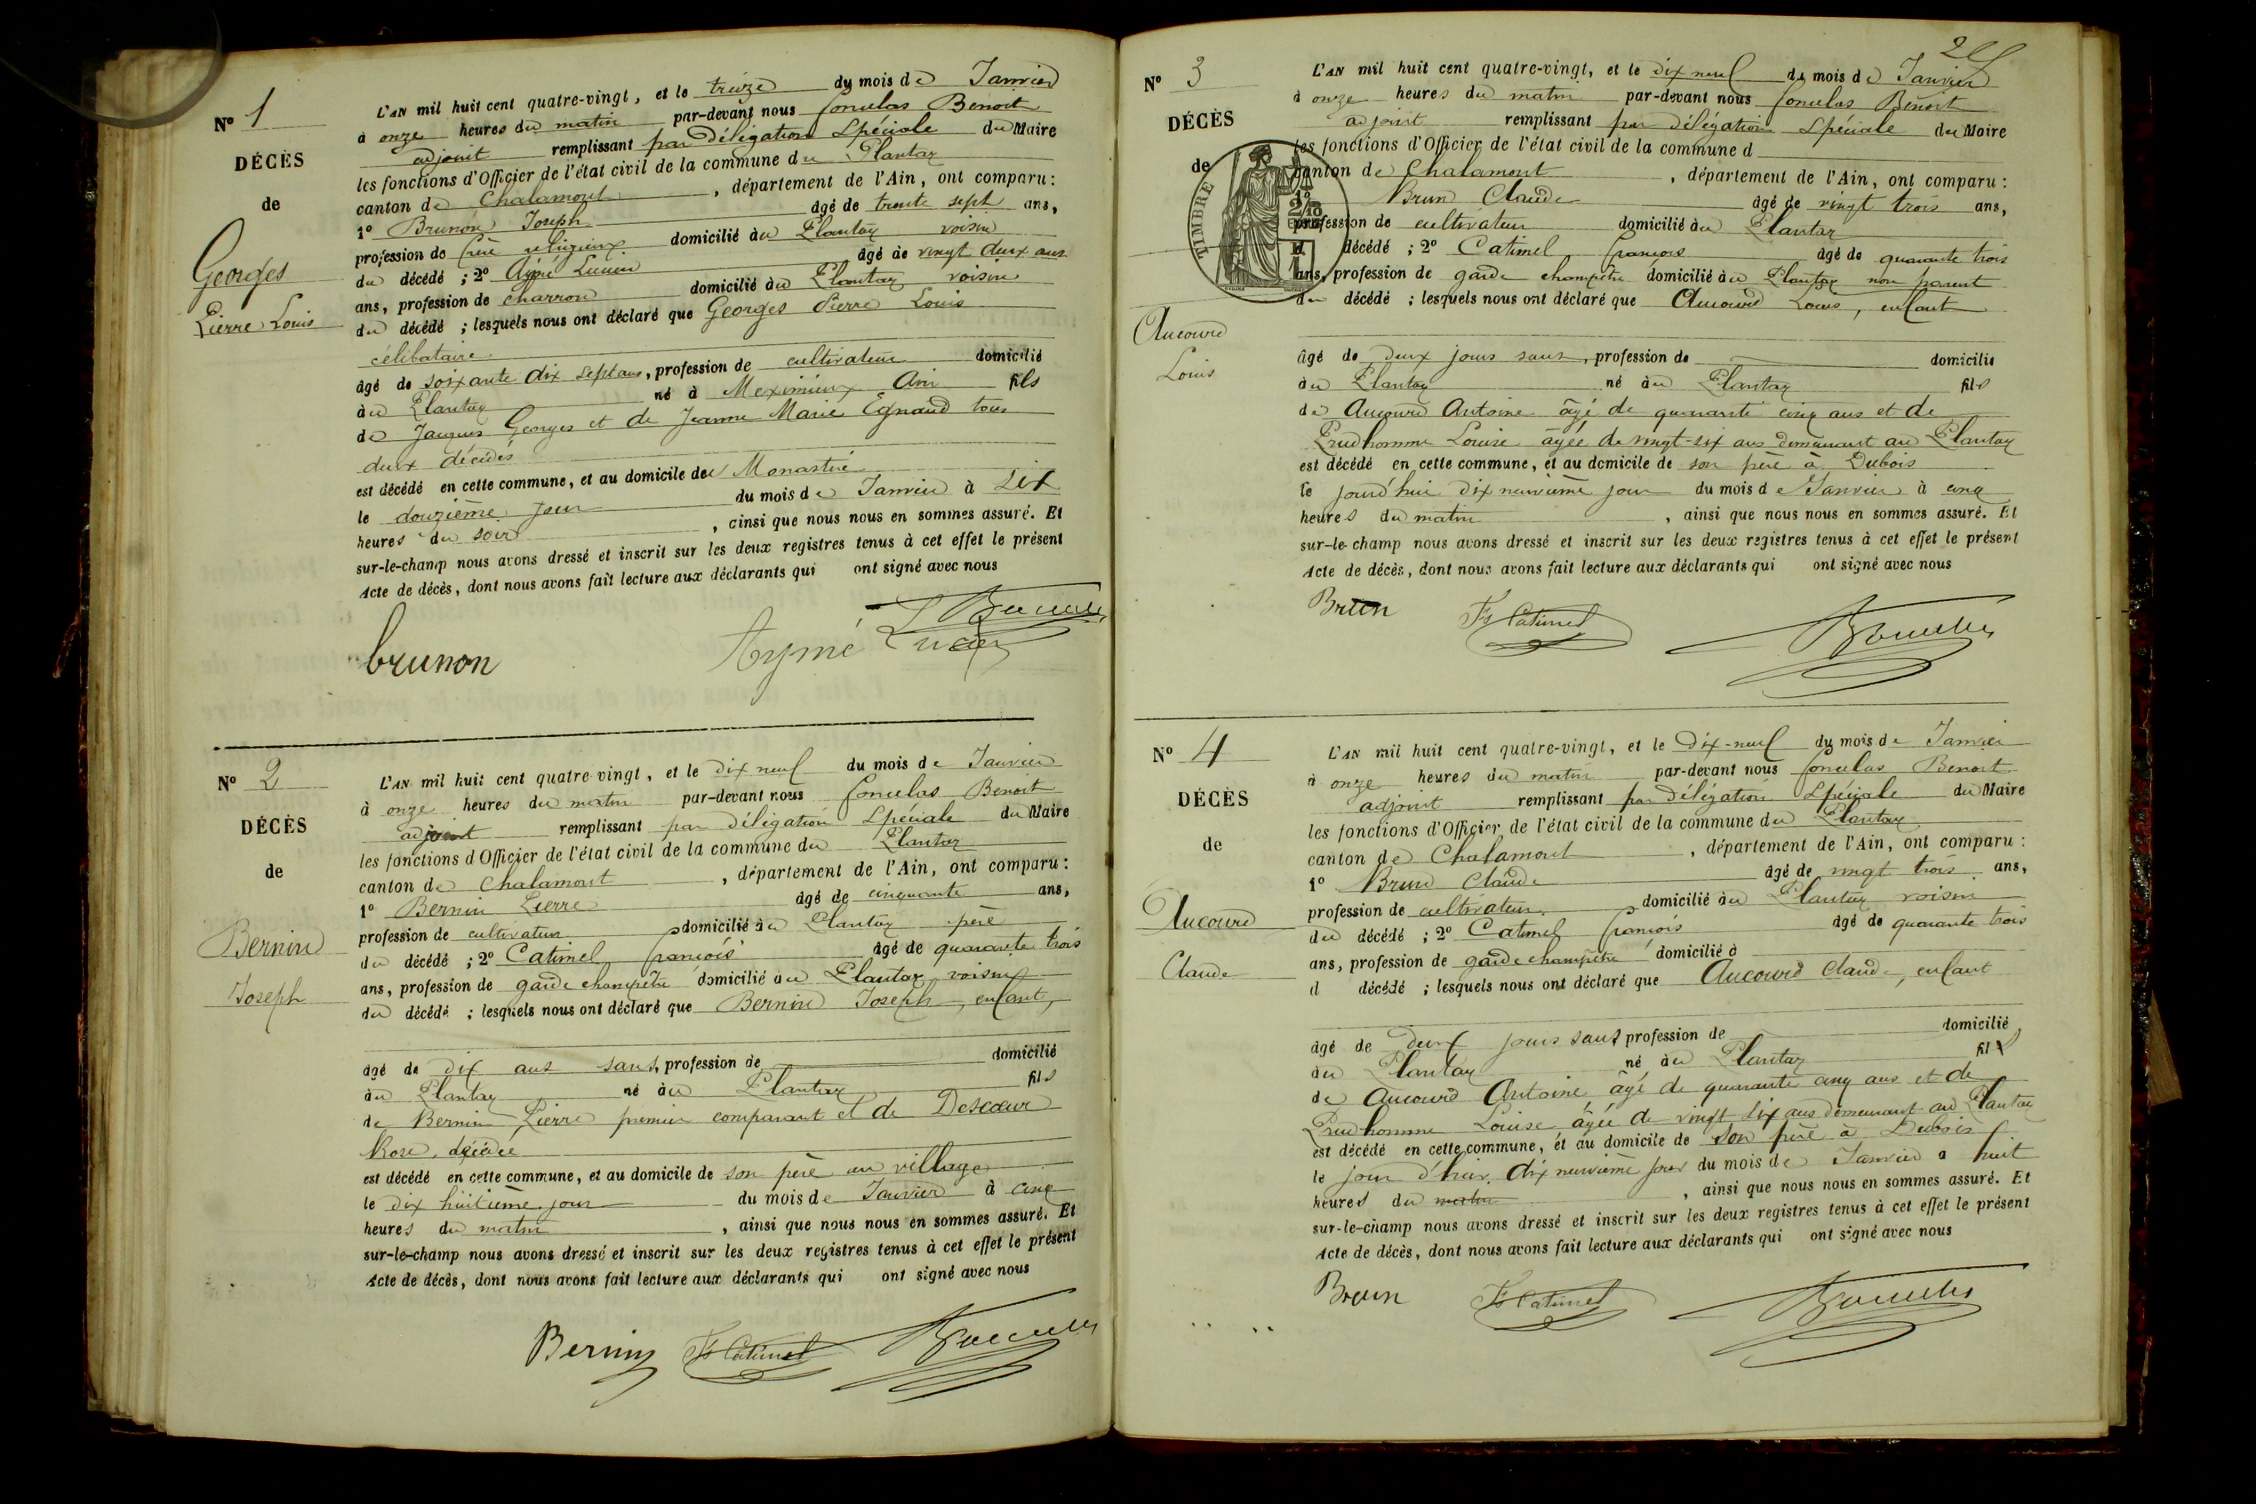 N° 1
DÉCÈS
de
Georges
Pierre Louis
L'AN mil huit cent quatre-vingt, et le treize du mois de Janvier
à onze heures du matin par-devant nous Benoit
adjoint remplissant par Délégation Spéciale du Maire
les fonctions d'Officier de l'état civil de la commune du Plantay
canton de Chalamont, département de l'Ain, ont comparu :
1° Brunon Joseph âgé de trente sept ans,
profession de frère religieux domicilié au Plantay voisin
du décédé ; 2° Aymé Lucien âgé de vingt deux ans
ans, profession de charron domicilié au Plantay voisin
du décédé ; lesquels nous ont déclaré que Georges Pierre Louis
célibataire
âgé de soixante dix sept ans, profession de cultivateur domicilié
au Plantay né à Meximieux Ain fils
de Jacques Georges et de Jeanne Marie tous
deux décédés
est décédé en cette commune, et au domicile du Monastère
le douzième jour du mois de Janvier à six
heures du soir, ainsi que nous nous en sommes assuré. Et
sur-le-champ nous avons dressé et inscrit sur les deux registres tenus à cet effet le présent
Acte de décès, dont nous avons fait lecture aux déclarants qui ont signé avec nous
brunon Aymé Lucien
N° 2
DÉCÈS
de
Bernin
Joseph
L'AN mil huit cent quatre-vingt, et le dix neuf du mois de Janvier
à onze heures du matin par-devant nous Benoit
adjoint remplissant par Délégation Spéciale du Maire
les fonctions d'Officier de l'état civil de la commune du Plantay
canton de Chalamont, département de l'Ain, ont comparu :
1° Bernin Pierre âgé de cinquante ans,
profession de cultivateur domicilié au Plantay père
du décédé ; 2° Catimel françois âgé de quarante trois
ans, profession de garde champêtre domicilié au Plantay voisin
du décédé ; lesquels nous ont déclaré que Bernin Joseph, enfant,
âgé de dix ans sans, profession de domicilié
au Plantay né au Plantay fils
de Bernin Pierre premier comparant et de Descoeur
Rose, décédée
est décédé en cette commune, et au domicile de son père au village
le dix huitième jour du mois de Janvier à cinq
heures du matin, ainsi que nous nous en sommes assuré. Et
sur-le-champ nous avons dressé et inscrit sur les deux registres tenus à cet effet le présent
Acte de décès, dont nous avons fait lecture aux déclarants qui ont signé avec nous
Bernin Fs Catimel
N° 3
DÉCÈS
de
TIMBRE
Aucourd
Louis
L'AN mil huit cent quatre-vingt, et le dix neuf du mois de Janvier
à onze heures du matin par-devant nous Benoit
adjoint remplissant par délégation Spéciale du Maire
les fonctions d'Officier de l'état civil de la commune d
canton de Chalamont, département de l'Ain, ont comparu :
1° Brun Claude âgé de vingt trois ans,
profession de cultivateur domicilié au Plantay
d décédé ; 2° Catimel françois âgé de quarante trois
ans, profession de garde champêtre domicilié au Plantay non parent
du décédé ; lesquels nous ont déclaré que Aucourd Louis, enfant
âgé de deux jours sans, profession de domicilié
au Plantay né au Plantay fils
de Aucourd Antoine âgé de quarante cinq ans et de
Prudhomme Louise âgée de vingt-six ans demeurant au Plantay
est décédé en cette commune, et au domicile de son père à Dubois
le jourd'hui dix neuvième jour du mois de Janvier à cinq
heures du matin, ainsi que nous nous en sommes assuré. Et
sur-le-champ nous avons dressé et inscrit sur les deux registres tenus à cet effet le présent
Acte de décès, dont nous avons fait lecture aux déclarants qui ont signé avec nous
Brun Fs Catimel
N° 4
DÉCÈS
de
Aucourd
Claude
L'AN mil huit cent quatre-vingt, et le dix-neuf du mois de Janvier
à onze heures du matin par-devant nous Benoit
adjoint remplissant par Délégation Spéciale du Maire
les fonctions d'Officier de l'état civil de la commune du Plantay
canton de Chalamont, département de l'Ain, ont comparu :
1° Brun Claude âgé de vingt trois ans,
profession de cultivateur domicilié au Plantay voisin
du décédé ; 2° Catimel françois âgé de quarante trois
ans, profession de garde champêtre domicilié à
d décédé ; lesquels nous ont déclaré que Aucourd Claude, enfant
âgé de deux jours sans, profession de domicilié
au Plantay né au Plantay fils
de Aucourd Antoine âgé de quarante cinq ans et de
Prudhomme Louise âgée de vingt six ans demeurant au Plantay
est décédé en cette commune, et au domicile de son père à Dubois
le jour d'hui dix neuvième jour du mois de Janvier à huit
heures du matin, ainsi que nous nous en sommes assuré. Et
sur-le-champ nous avons dressé et inscrit sur les deux registres tenus à cet effet le présent
Acte de décès, dont nous avons fait lecture aux déclarants qui ont signé avec nous
Brun Fs Catimel